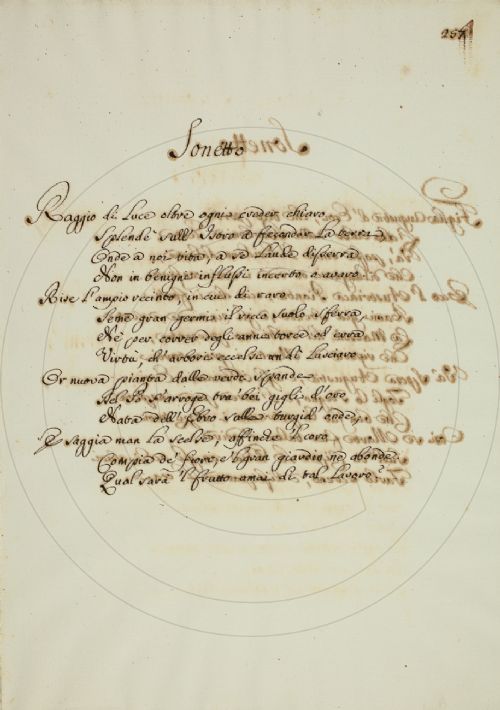 257
Sonetto
Raggio di Luce oltre ogni creder chiaro
Splende sull' Istro a fecondar La terra
Onde a noi vita, a se Laude disserra
Non in benigni influssi incerto o avaro
Ride l'ampio recinto, in cui di raro
Seme gran germi il ricco suolo sferra
Nè per correr degli anni torce od erra
Virtù, ch'arbori eccelsi un dì Lasciaro
Or nuova pianta dalle verdi
s'arroge tra bei gigli d'oro
Nata dell' sulle onde,
E saggia man La scelse, affinchè il coro
Compia de' fiori, e'l gran giardin ne abonde
Qual sarà 'l frutto omai di tal Lavoro?